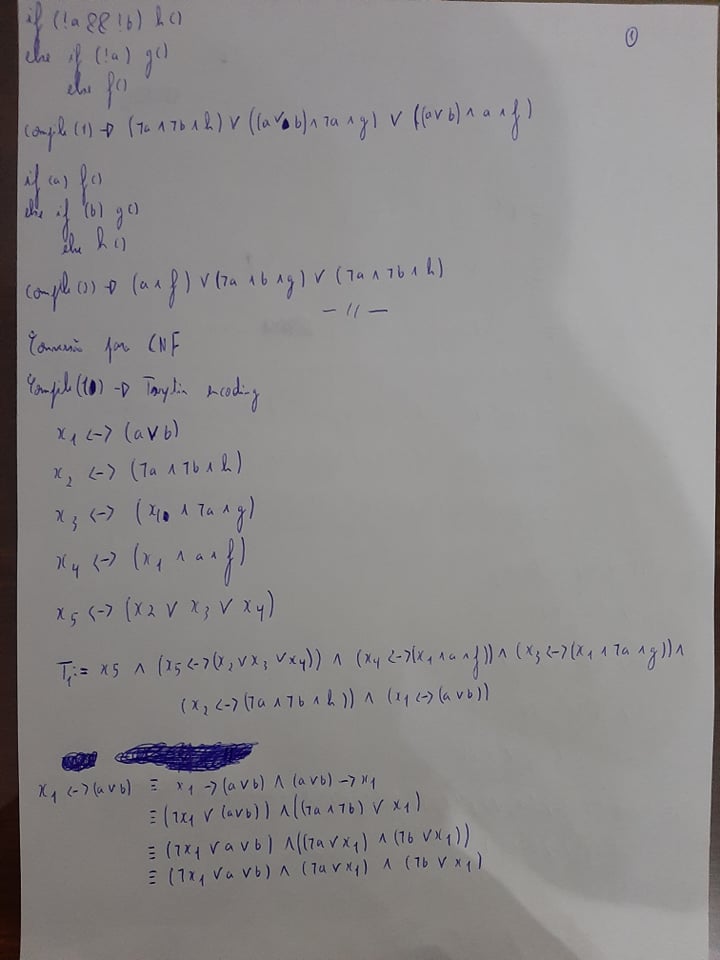 if (!a && !b) h()
①
else if (!a) g()
else f()
compile (1) → (¬a ∧ ¬b ∧ h) ∨ ((a ∨ b) ∧ ¬a ∧ g) ∨ ((a ∨ b) ∧ a ∧ f)
if (a) f()
else if (b) g()
else h()
compile (2) → (a ∧ f) ∨ (¬a ∧ b ∧ g) ∨ (¬a ∧ ¬b ∧ h)
— // —
Conversão para CNF
Compile (1) → encoding
x₁ <-> (a ∨ b)
x₂ <-> (¬a ∧ ¬b ∧ h)
x₃ <-> (x₁ ∧ ¬a ∧ g)
x₄ <-> (x₁ ∧ a ∧ f)
x₅ <-> (x2 ∨ x₃ ∨ x₄)
T₁ := x5 ∧ (x₅ <-> (x₂ ∨ x₃ ∨ x₄)) ∧ (x₄ <-> (x₁ ∧ a ∧ f)) ∧ (x₃ <-> (x₁ ∧ ¬a ∧ g)) ∧
(x₂ <-> (¬a ∧ ¬b ∧ h)) ∧ (x₁ <-> (a ∨ b))
x₁ <-> (a ∨ b) ≡ x₁ -> (a ∨ b) ∧ (a ∨ b) -> x₁
≡ (¬x₁ ∨ (a ∨ b)) ∧ ((¬a ∧ ¬b) ∨ x₁)
≡ (¬x₁ ∨ a ∨ b) ∧ ((¬a ∨ x₁) ∧ (¬b ∨ x₁))
≡ (¬x₁ ∨ a ∨ b) ∧ (¬a ∨ x₁) ∧ (¬b ∨ x₁)